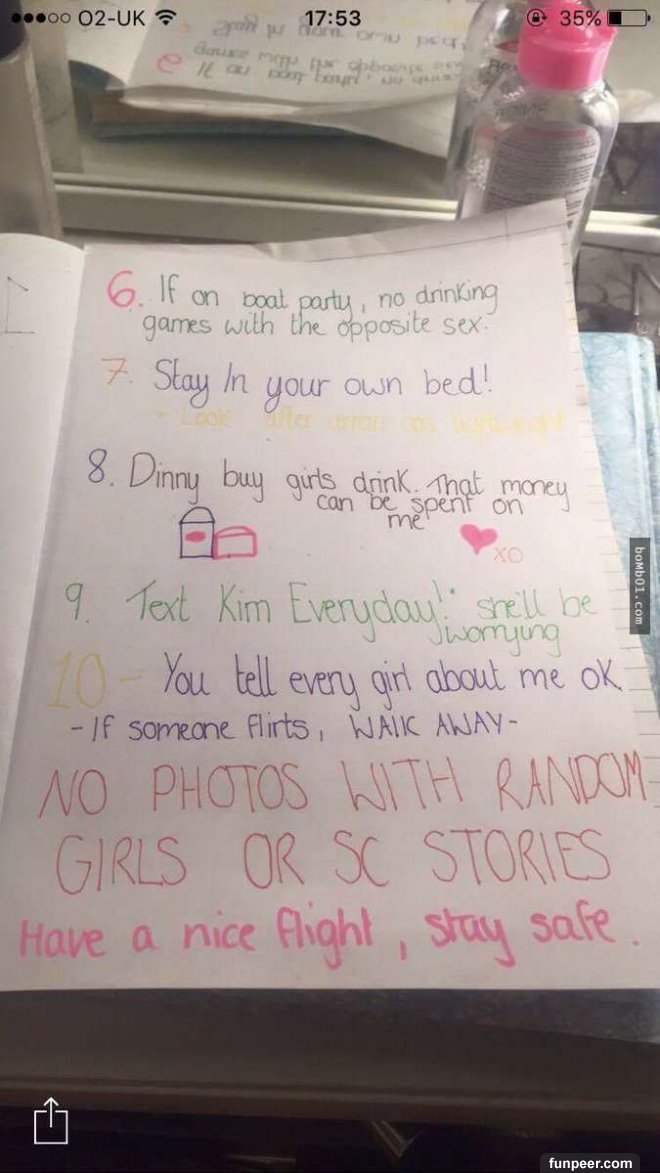 O2-UK 17:53 35%
6. If on boat party, no drinking
games with the opposite sex.
7. Stay In your own bed!
+ Look after cos lightweight
8. Dinny buy girls drink. That money
can be spent on
me
XO
9. Text Kim Everyday! she'll be
worrying
10 - You tell every girl about me ok
- If someone flirts, WALK AWAY -
NO PHOTOS WITH RANDOM
GIRLS OR SC STORIES
Have a nice flight, stay safe.
bomb01.com
funpeer.com